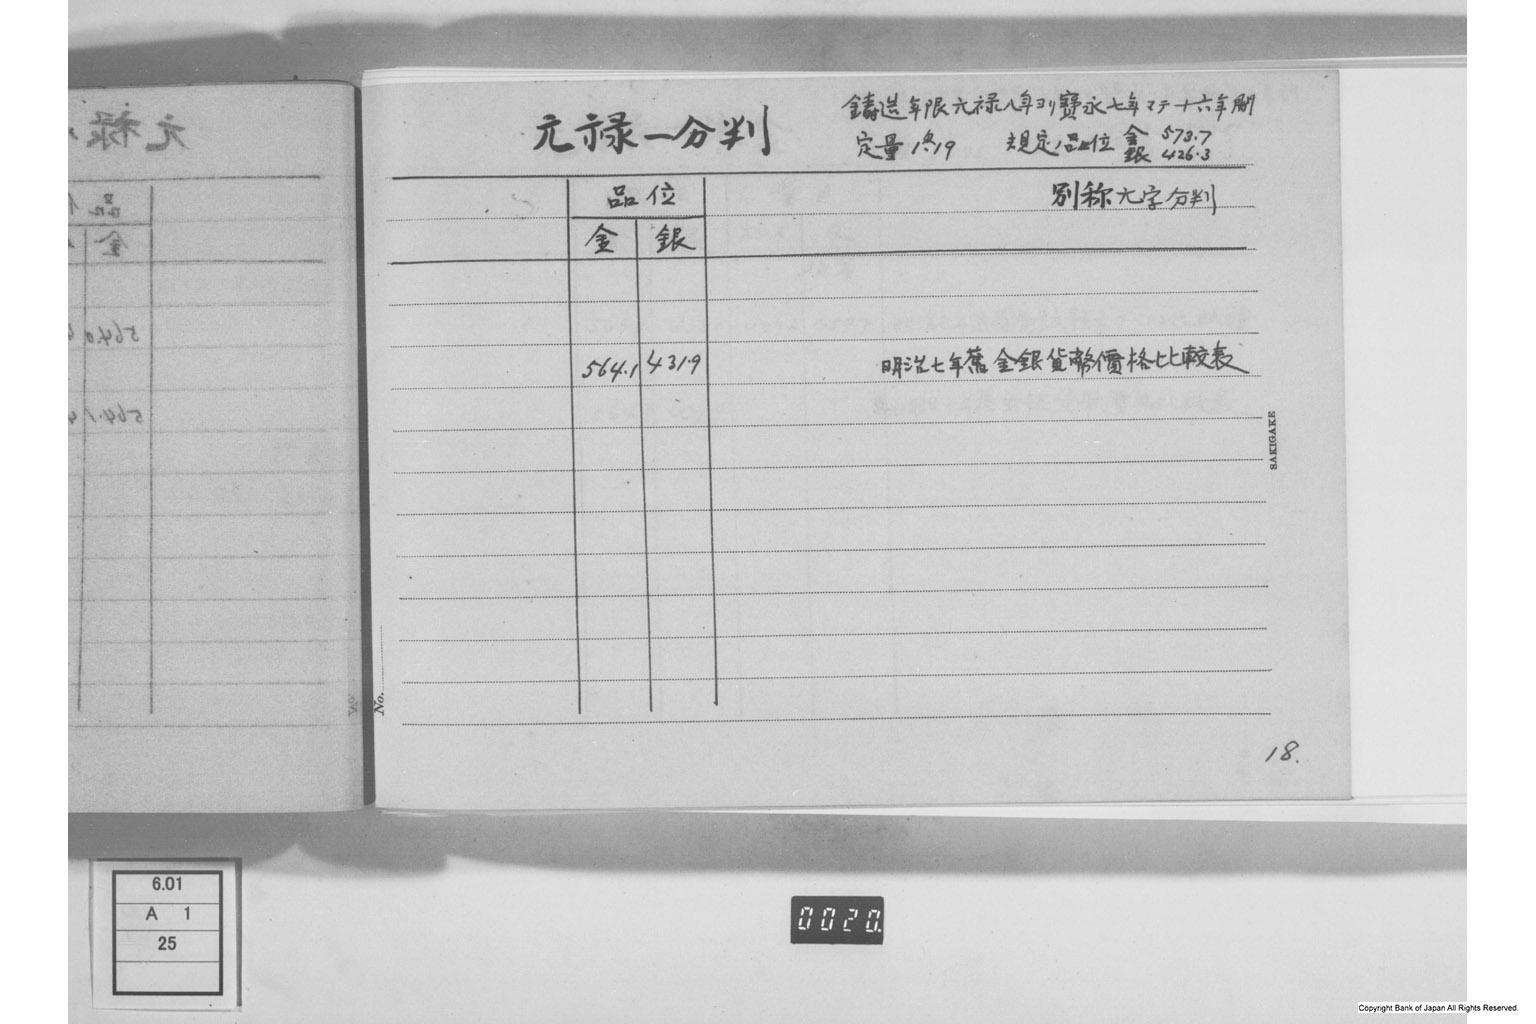 元禄一分判
鋳造年限元禄八年ヨリ寳永七年マテ十六年間
定量 1匁19 規定品位 金 573.7
銀 426.3
品位
別称 元字分判
金 銀
564.1 431.9 明治七年舊金銀貨幣價格比較表
SAKIGAKE
No.
18.
元禄
品
金
564.0
564.1
6.01
A 1
25
0020
Copyright Bank of Japan All Rights Reserved.